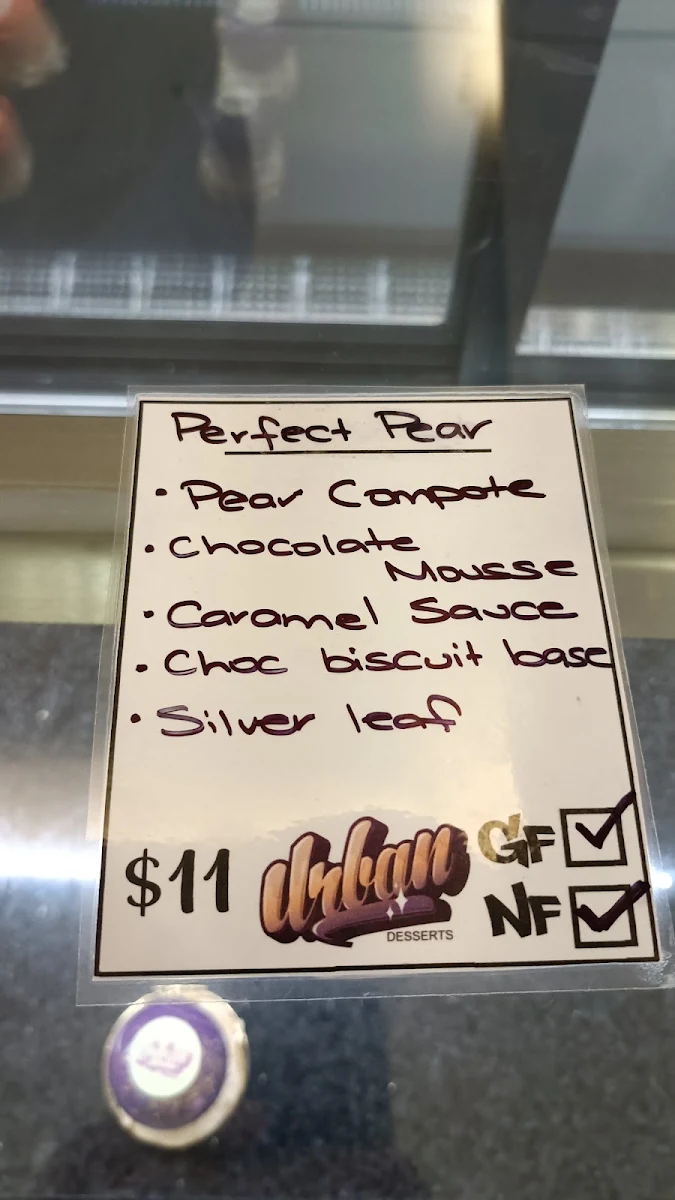 Perfect Pear
• Pear Compote
• Chocolate
Mousse
• Caramel Sauce
• Choc biscuit base
• Silver leaf
$11
Urban
DESSERTS
GF
NF